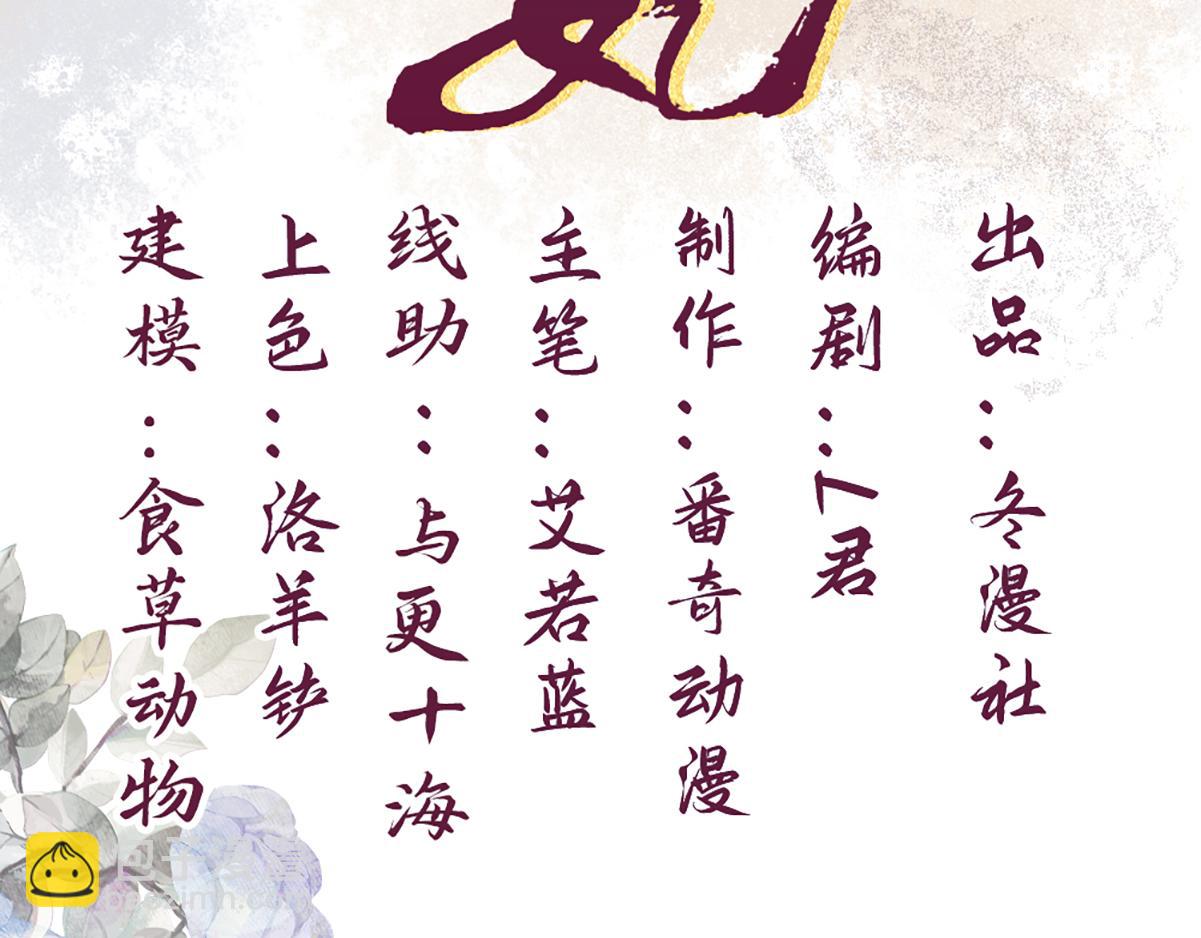 出品：冬漫社
编剧：7君
制作：番奇动漫
主笔：艾若蓝
线助：与更十海
上色：洛羊铲
建模：食草动物
包子漫畫
baozimh.com